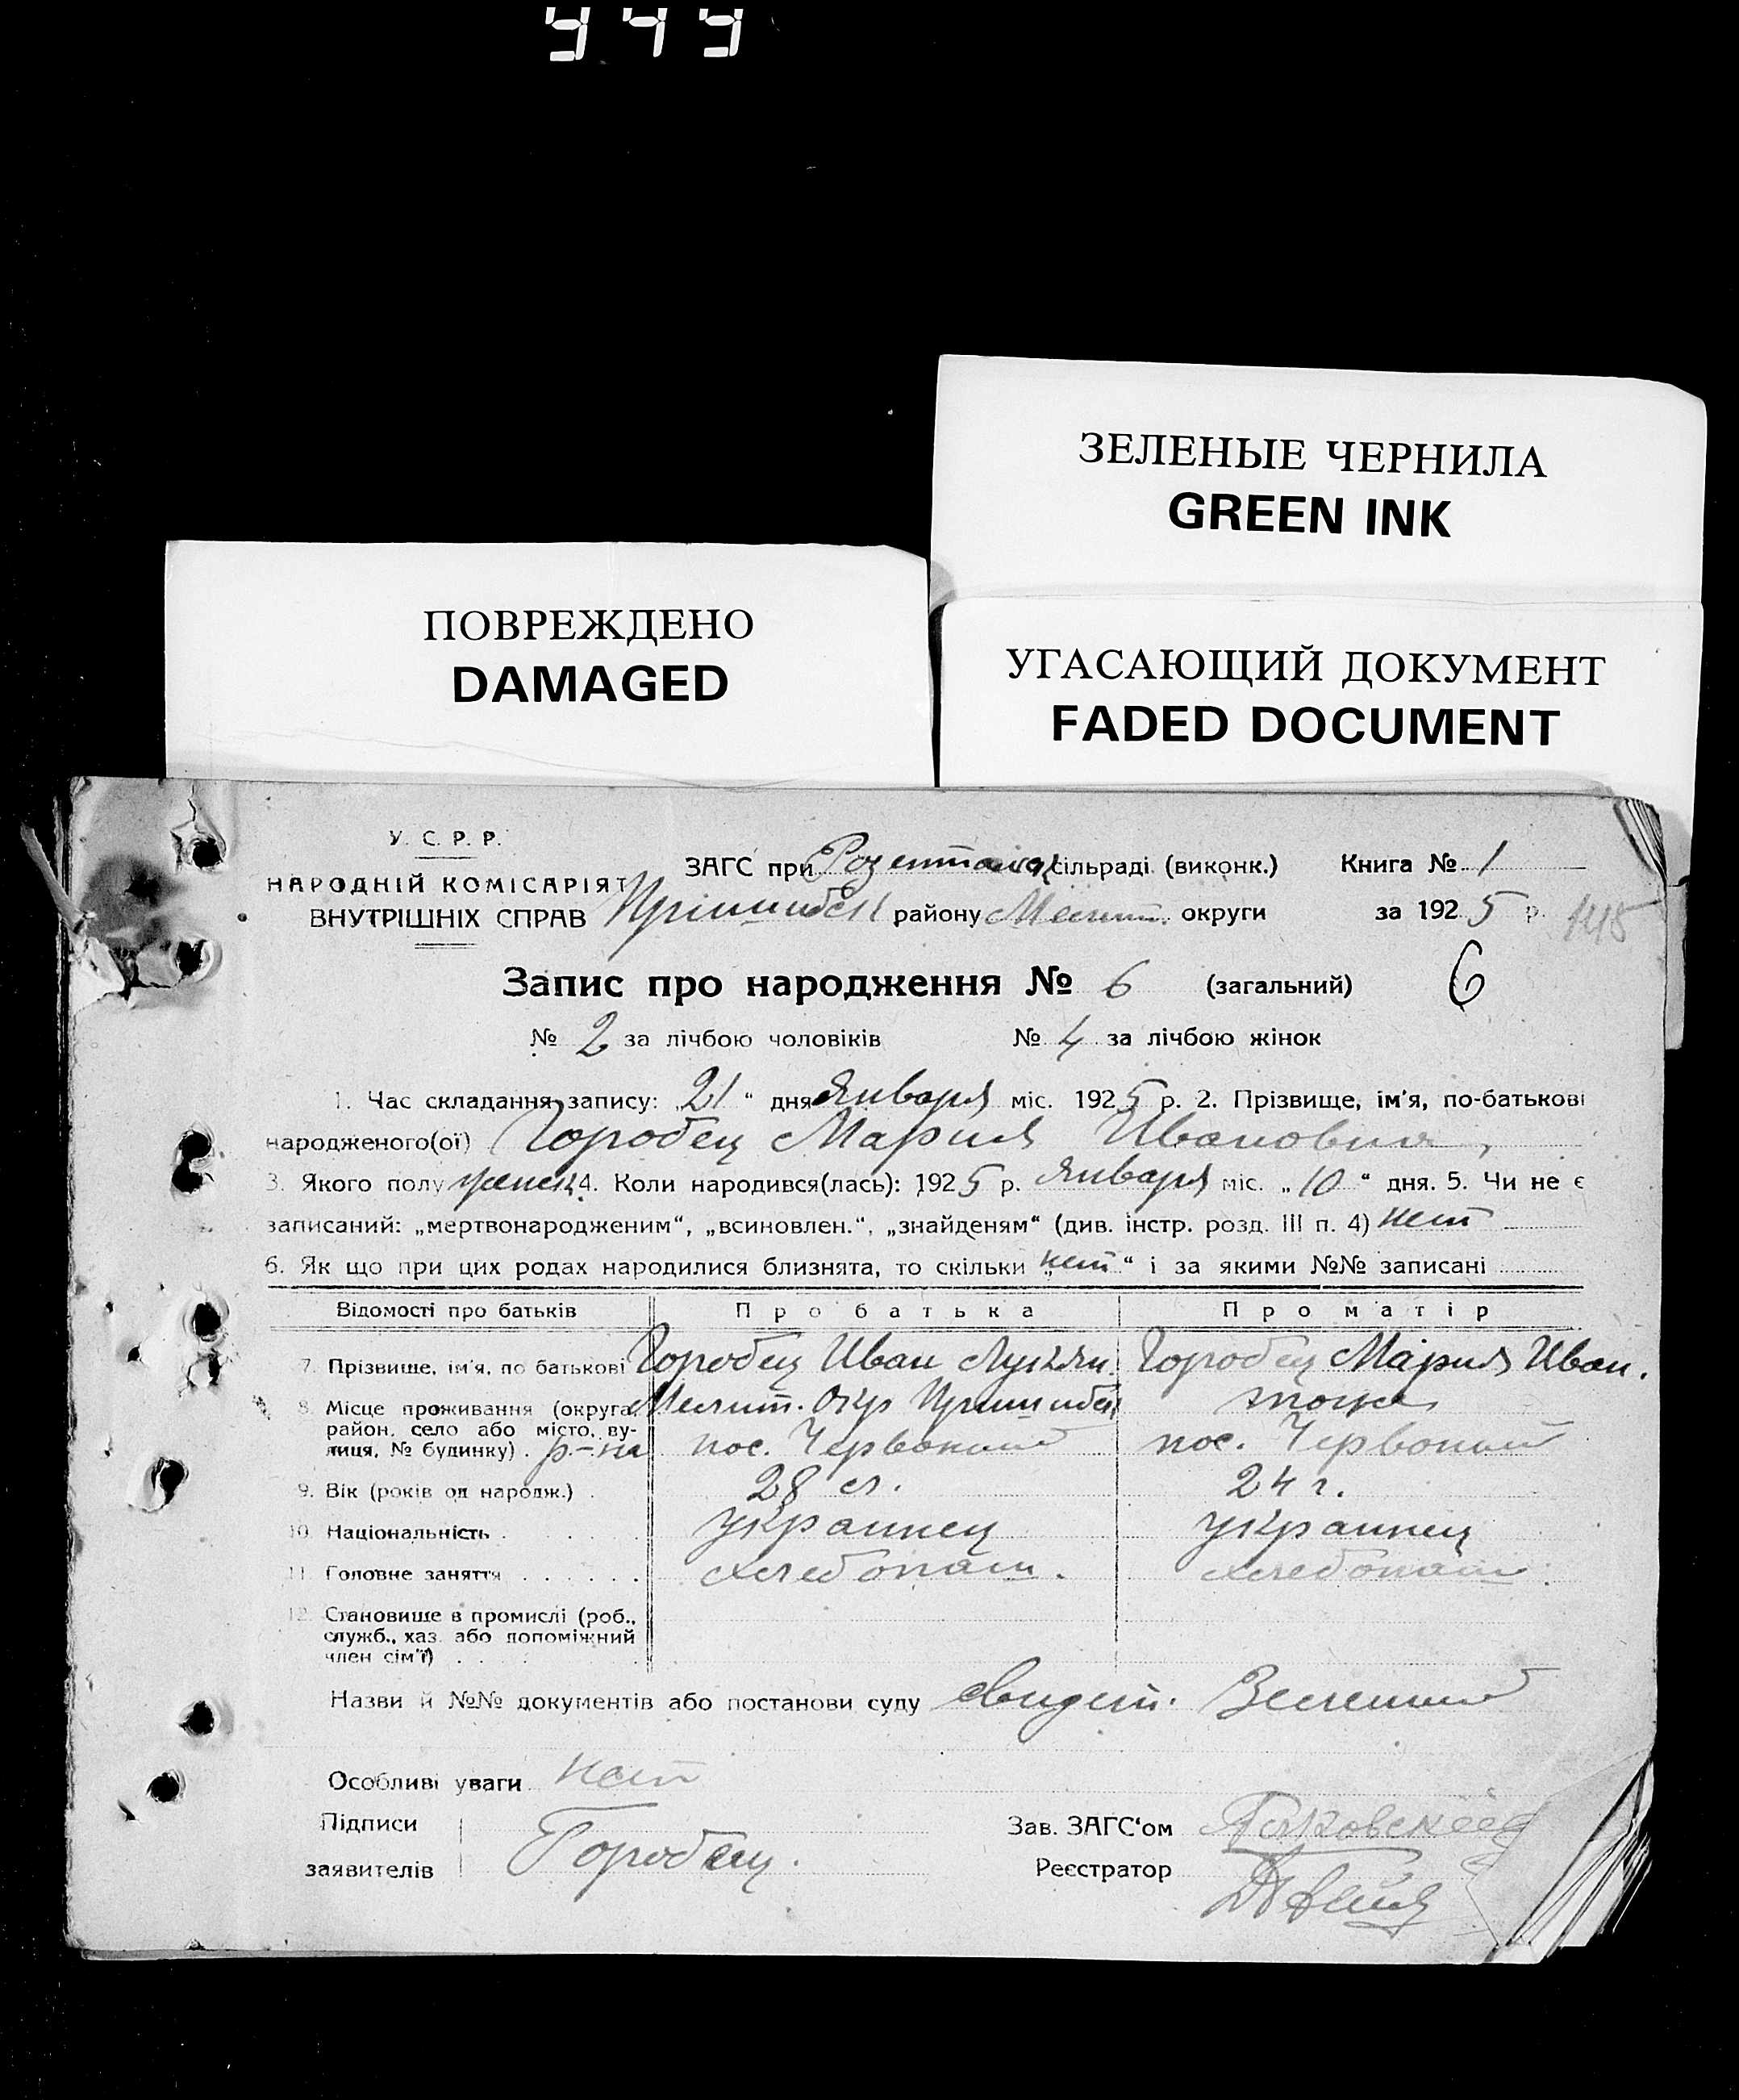 949
ЗЕЛЕНЫЕ ЧЕРНИЛА
GREEN INK
ПОВРЕЖДЕНО
DAMAGED
УГАСАЮЩИЙ ДОКУМЕНТ
FADED DOCUMENT
У. С. Р. Р.
НАРОДНІЙ КОМІСАРІЯТ
ВНУТРІШНІХ СПРАВ
ЗАГС при Розентальск сільраді (виконк.) Книга № 1
Пришибск району Мелит. округи за 1925 р. 145
Запис про народження № 6 (загальний) 6
№ 2 за лічбою чоловіків № 4 за лічбою жінок
1. Час складання запису: „21“ дня Января міс. 1925 р. 2. Прізвище, ім'я, по-батькові
народженого(ої) Горобец Мария Ивановна,
3. Якого полу женск 4. Коли народився(лась): 1925 р. Января міс. „10“ дня. 5. Чи не є
записаний: „мертвонародженим“, „всиновлен.“, „знайденям“ (див. інстр. розд. III п. 4) нет
6. Як що при цих родах народилися близнята, то скільки „нет“ і за якими №№ записані
Відомості про батьків Про батька Про матір
7. Прізвище, ім'я, по батькові Горобец Иван Лукян. Горобец Мария Иван.
8. Місце проживання (округа, район, село або місто, вулиця, № будинку) . р-на Мелит. Окр Пришибск тоже
пос. Червоный пос. Червоный
9. Вік (років од народж.) . 28 л. 24 г.
10. Національність . украинец украинец
11. Головне заняття . хлебопаш. хлебопаш.
12. Становище в промислі (роб.,
служб., хаз. або допоміжний
член сім'ї)
Назви й №№ документів або постанови суду свидет. Зеленый
Особливі уваги нет
Підписи
заявителів Горобец.
Зав. ЗАГС'ом
Реєстратор